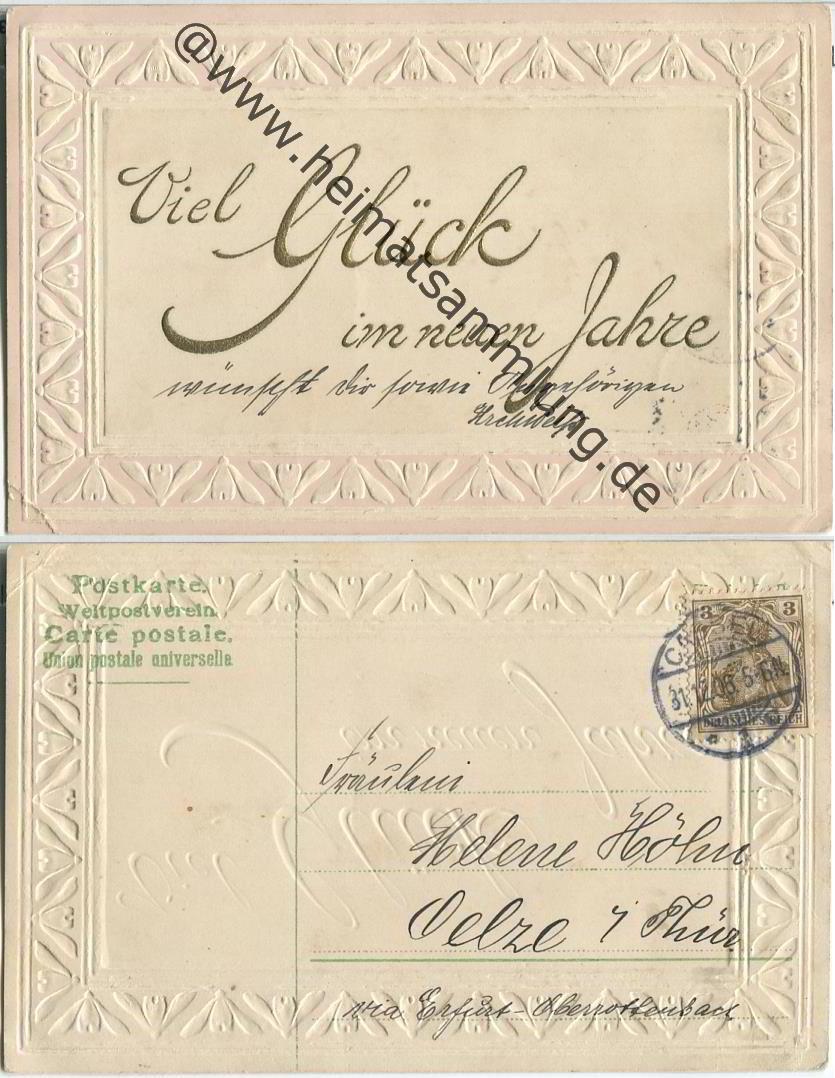 @www.heimatsammlung.de
Viel Glück
im neuen Jahre
wünscht Dir sowie Angehörigen
Postkarte.
Weltpostverein.
Carte postale.
Union postale universelle
3 3
CASSEL
31.12.06 5-6N.
DEUTSCHES REICH
* 1
Fräulein
Helene Höhn
Oelze i Thür
via Erfurt-Oberrottenbach